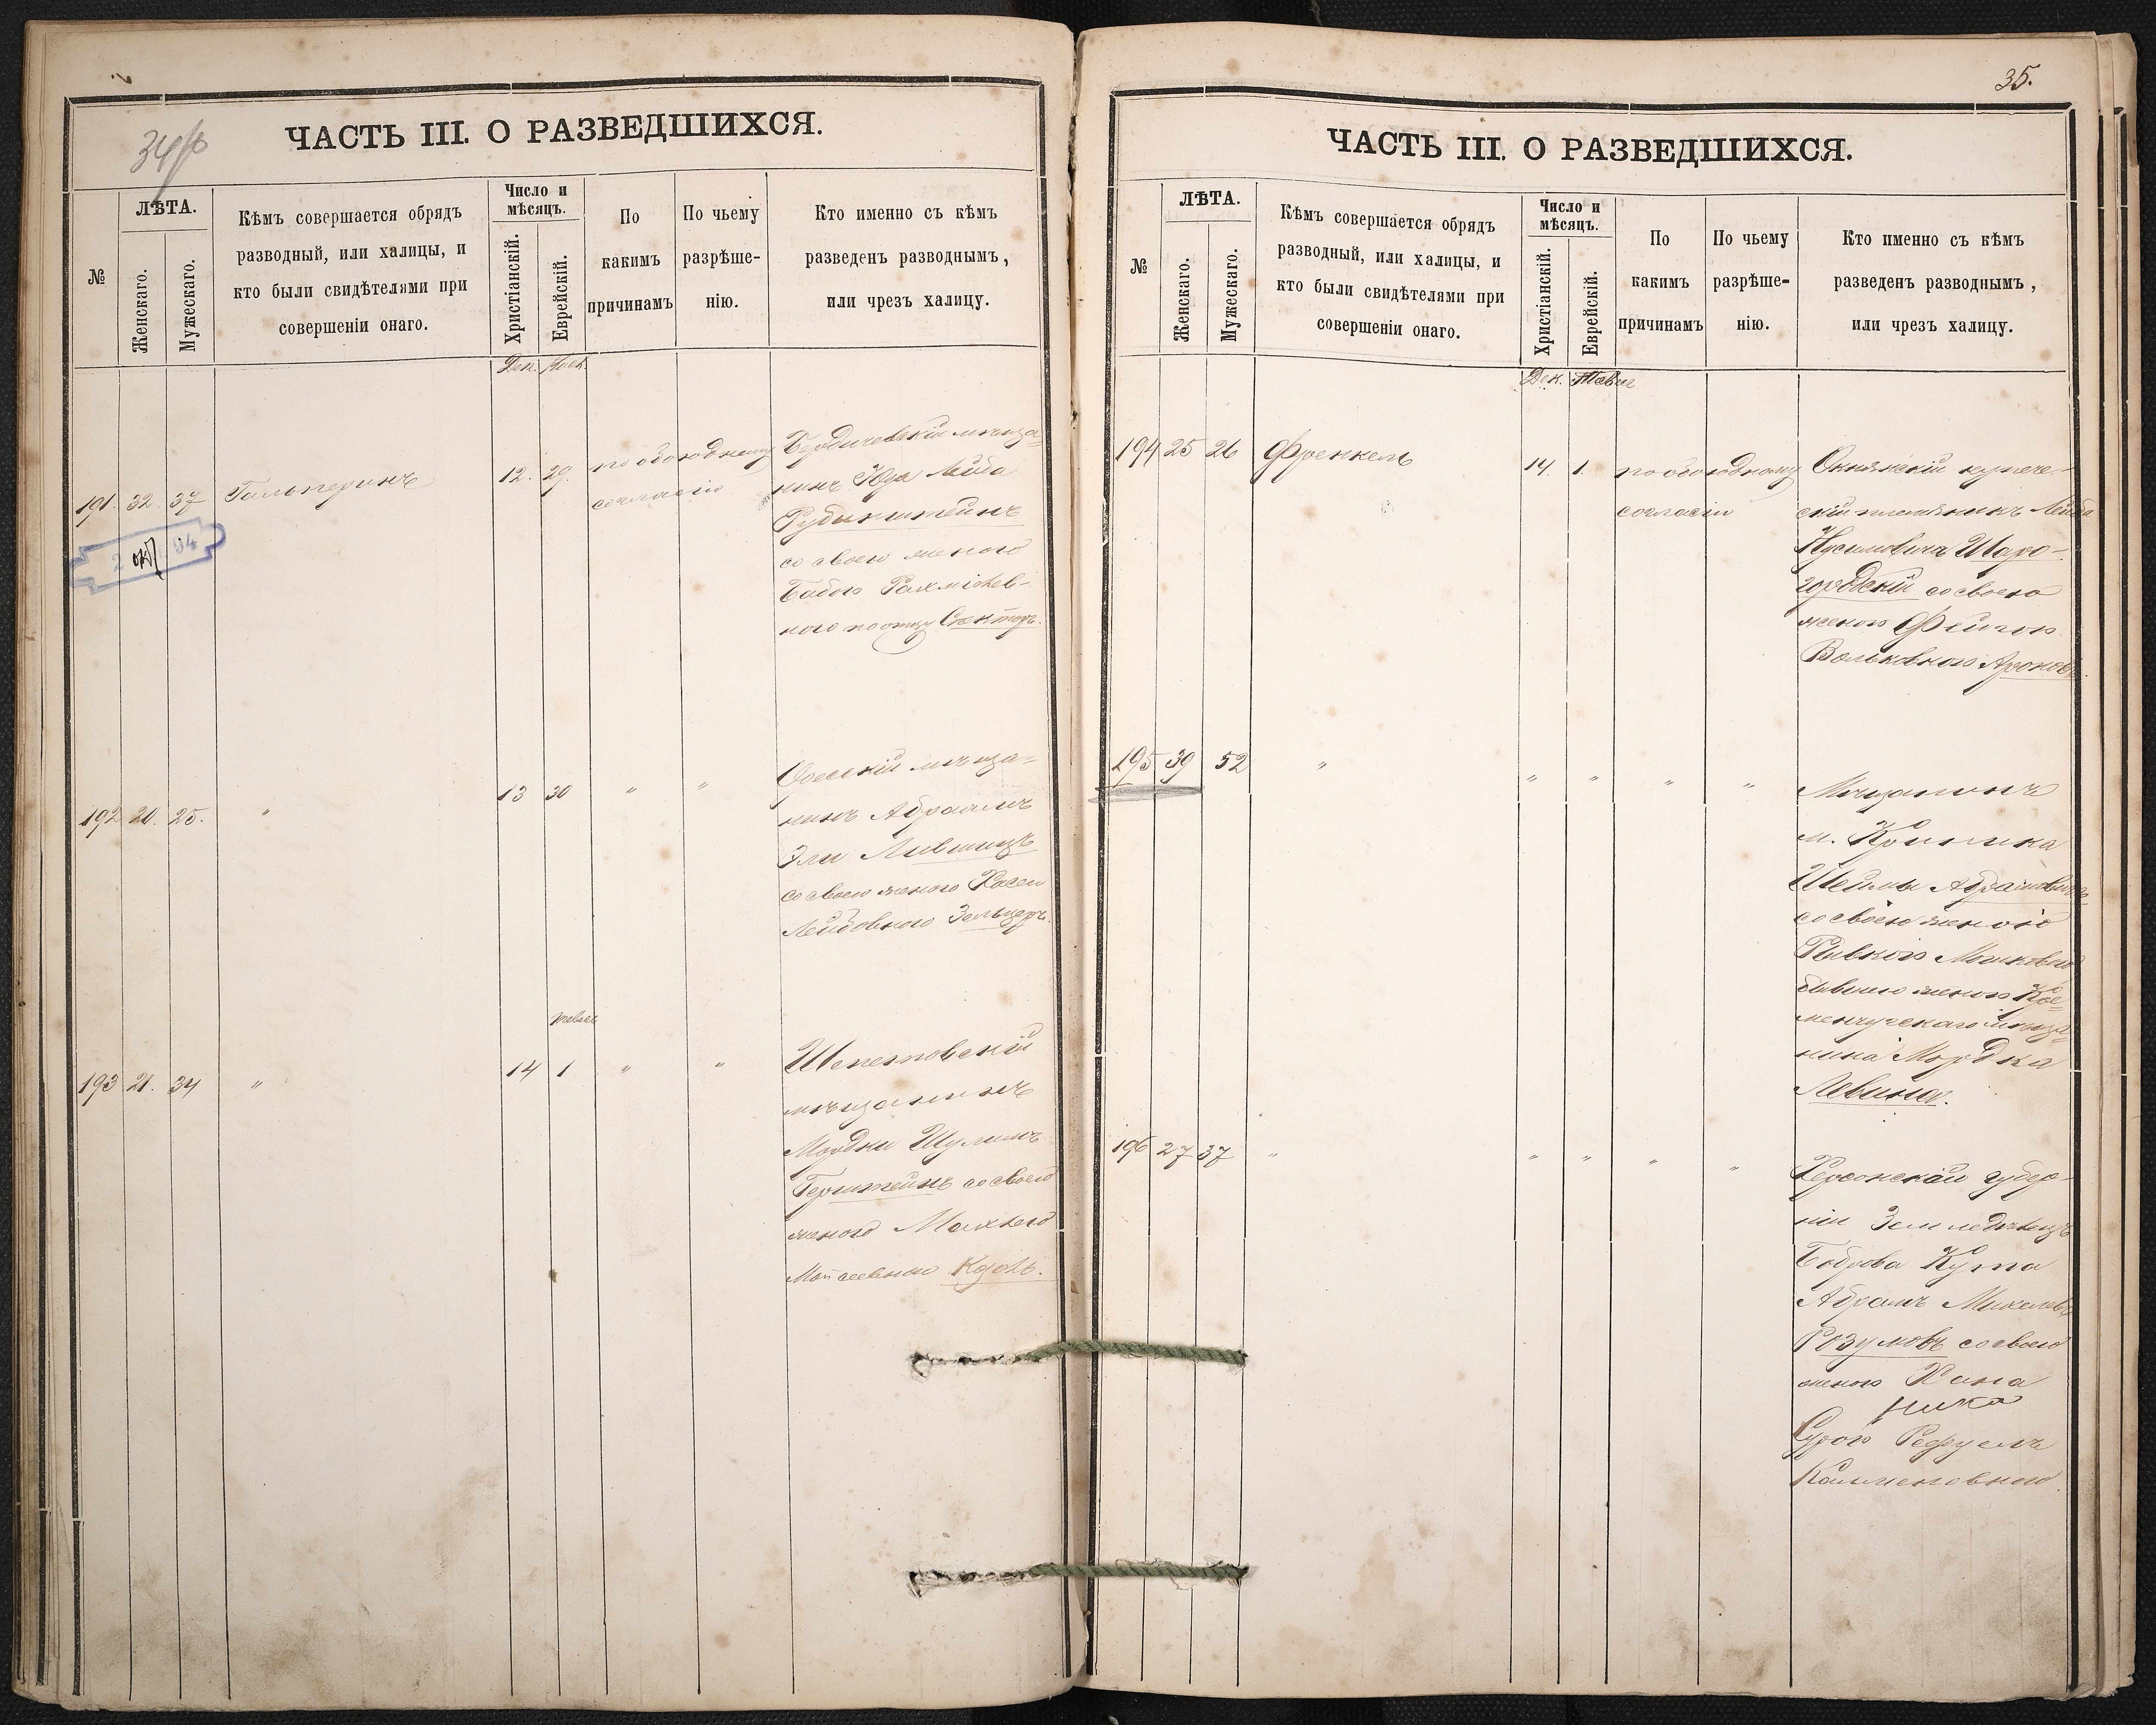 34 об
ЧАСТЬ III. О РАЗВЕДШИХСЯ.
№
ЛѢТА.
Женскаго.
Мужескаго.
Кѣмъ совершается обрядъ
разводный, или халицы, и
кто были свидѣтелями при
совершеніи онаго.
Число и
мѣсяцъ.
Христіанскій.
Еврейскій.
По
какимъ
причинамъ
По чьему
разрѣше-
нію.
Кто именно съ кѣмъ
разведенъ разводнымъ,
или чрезъ халицу.
Дек. Кисл.
191. 32. 37 Гальперинъ 12. 29. по обоюдному
согласію
Бердичевскій мѣща=
нинъ Юда Лейба
Рубинштейнъ
со своею женою
Бабою Рахміелев-
ною по отцу Спекторъ.
192 20. 25. " 13 30 " "
Одесскій мѣща=
нинъ Абрамъ
Эли Лившицъ
со своею женою Хасею
Лейбовною Зельцеръ.
тевес
193 21. 34 " 14 1 " "
Шепетовскій
мѣщанинъ
Мордки Шулимъ
Герштейнъ со своею
женою Малкою
Мойсеевною Козелъ.
35.
ЧАСТЬ III. О РАЗВЕДШИХСЯ.
№
ЛѢТА.
Женскаго.
Мужескаго.
Кѣмъ совершается обрядъ
разводный, или халицы, и
кто были свидѣтелями при
совершеніи онаго.
Число и
мѣсяцъ.
Христіанскій.
Еврейскій.
По
какимъ
причинамъ
По чьему
разрѣше-
нію.
Кто именно съ кѣмъ
разведенъ разводнымъ,
или чрезъ халицу.
Дек. Тевес
194 25 26 Френкель 14. 1. по обоюдному
согласію
купече-
скій племяникъ Лейба
Нусимовичъ Шаро-
городскій со своею
женою Фейгою
Вольковною
195 39 52 " " " " "
Мѣщанинъ
м. Крынка
Шеймы
со своею женою
Ривкою Мошковною
бывшею женою Кре=
менчугскаго мѣща=
нина Мордка
Левина.
196 27 37 " " " " "
Херсонской губер-
ніи Земледѣлецъ
Боброва Кута
Абрамъ
Розумовъ со своею
женою Хана
Сурою
Калменовною.